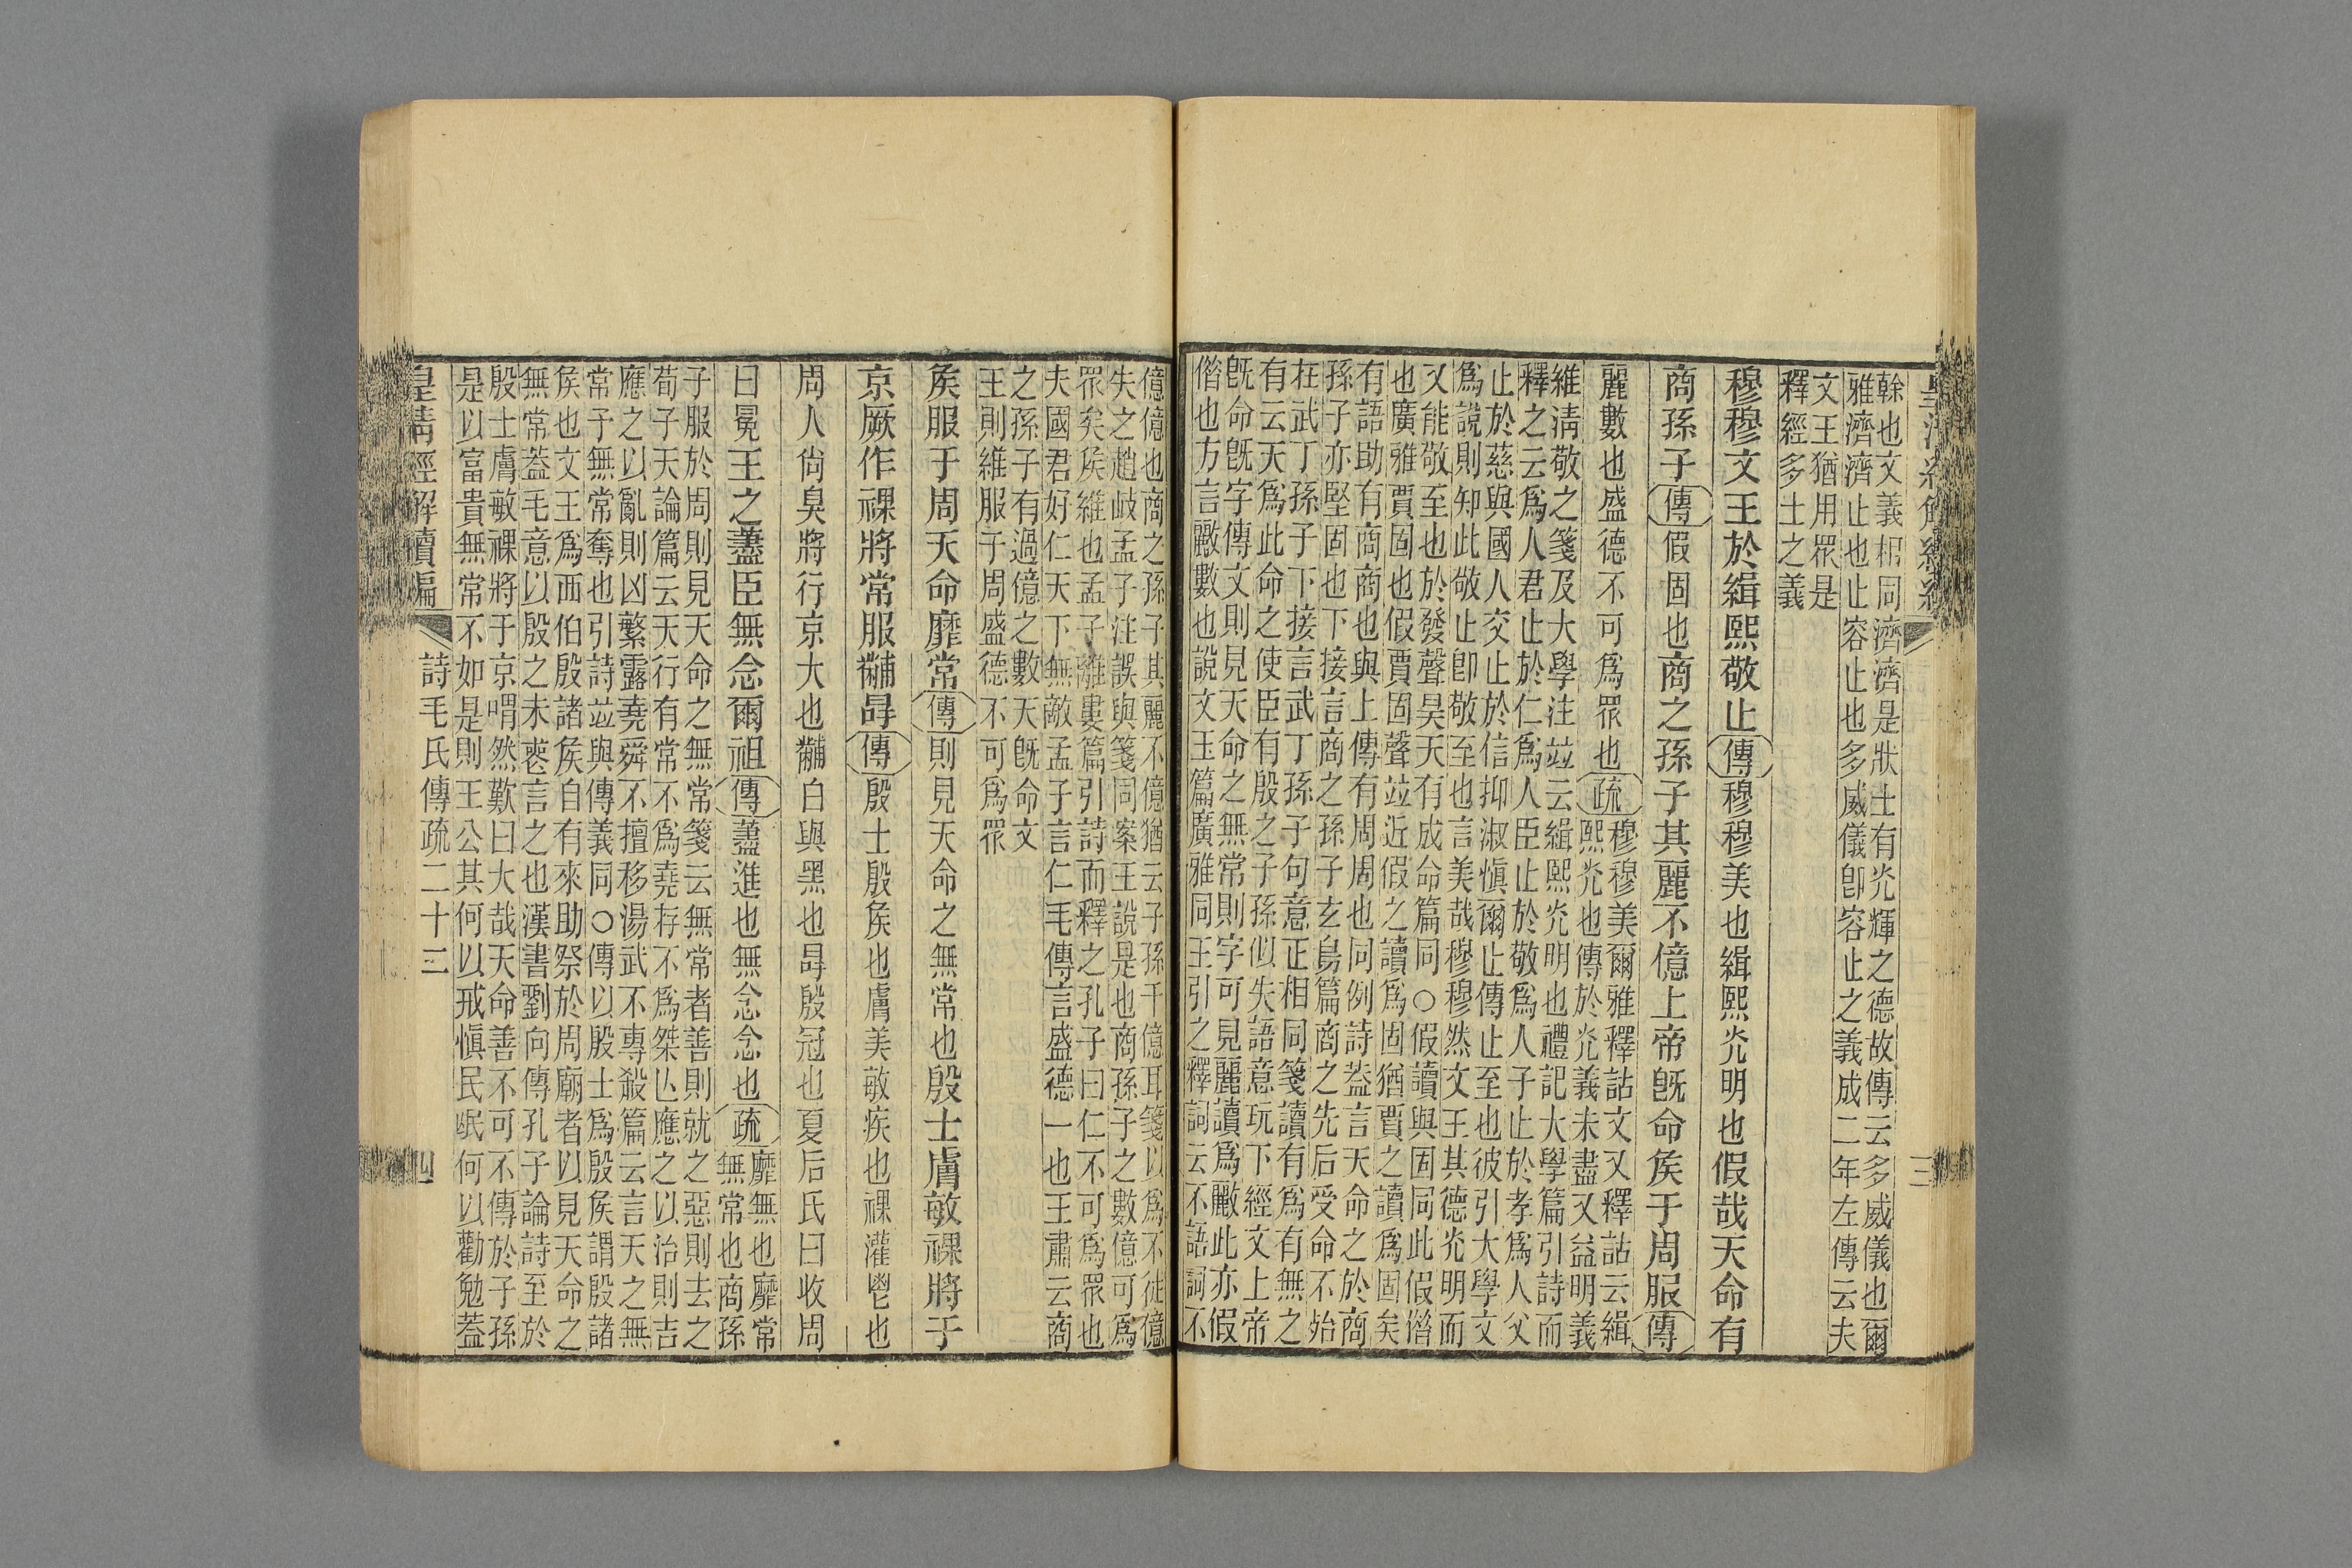 榦也文義相同濟濟是狀士有光輝之德故傳云多威儀也爾
雅濟濟止也止容止也多威儀卽容止之義成二年左傳云夫
文王猶用眾是
釋經多士之義
穆穆文王於緝熙敬止傳穆穆美也緝熙光明也假哉天命有
商孫子傳假固也商之孫子其麗不億上帝旣命矦于周服傳
麗數也盛德不可爲眾也疏
穆穆美爾雅釋詁文又釋詁云緝
熙光也傳於光義未盡又益明義
維淸敬之箋及大學注竝云緝熙光明也禮記大學篇引詩而
釋之云爲人君止於仁爲人臣止於敬爲人子止於孝爲人父
止於慈與國人交止於信抑淑愼爾止傳止至也彼引大學文
爲說則知此敬止卽敬至也言美哉穆穆然文王其德光明而
又能敬至也於發聲昊天有成命篇同○假讀與固同此假偕
也廣雅賈固也假賈固聲竝近假之讀爲固猶賈之讀爲固矣
有語助有商商也與上傳有周周也同例詩葢言天命之於商
孫子亦堅固也下接言商之孫子玄鳥篇商之先后受命不殆
在武丁孫子下接言武丁孫子句意正相同箋讀有爲有無之
有云天爲此命之使臣有殷之子孫似失語意玩下經文上帝
旣命旣字傳文則見天命之無常則字可見麗讀爲䴡此亦假
偕也方言䴡數也說文玉篇廣雅同王引之釋詞云不語詞不
億億也商之孫子其麗不億猶云子孫千億耳箋以爲不徒億
失之趙岐孟子注誤與箋同案王說是也商孫子之數億可爲
眾矣矦維也孟子離婁篇引詩而釋之孔子曰仁不可爲眾也
夫國君好仁天下無敵孟子言仁毛傳言盛德一也王肅云商
之孫子有過億之數天旣命文
王則維服于周盛德不可爲眾
矦服于周天命靡常傳則見天命之無常也殷士膚敏祼將于
京厥作祼將常服黼冔傳殷士殷矦也膚美敏疾也祼灌鬯也
周人尙臭將行京大也黼白與黑也冔殷冠也夏后氏曰收周
曰冕王之藎臣無念爾祖傳藎進也無念念也疏
靡無也靡常
無常也商孫
子服於周則見天命之無常箋云無常者善則就之惡則去之
荀子天論篇云天行有常不爲堯存不爲桀亾應之以治則吉
應之以亂則凶繁露堯舜不擅移湯武不專殺篇云言天之無
常予無常奪也引詩竝與傳義同○傳以殷士爲殷矦謂殷諸
矦也文王爲西伯殷諸矦自有來助祭於周廟者以見天命之
無常葢毛意以殷之未喪言之也漢書劉向傳孔子論詩至於
殷士膚敏祼將于京喟然歎曰大哉天命善不可不傳於子孫
是以富貴無常不如是則王公其何以戒愼民氓何以勸勉葢
皇淸經解續編
詩毛氏傳疏二十三
四